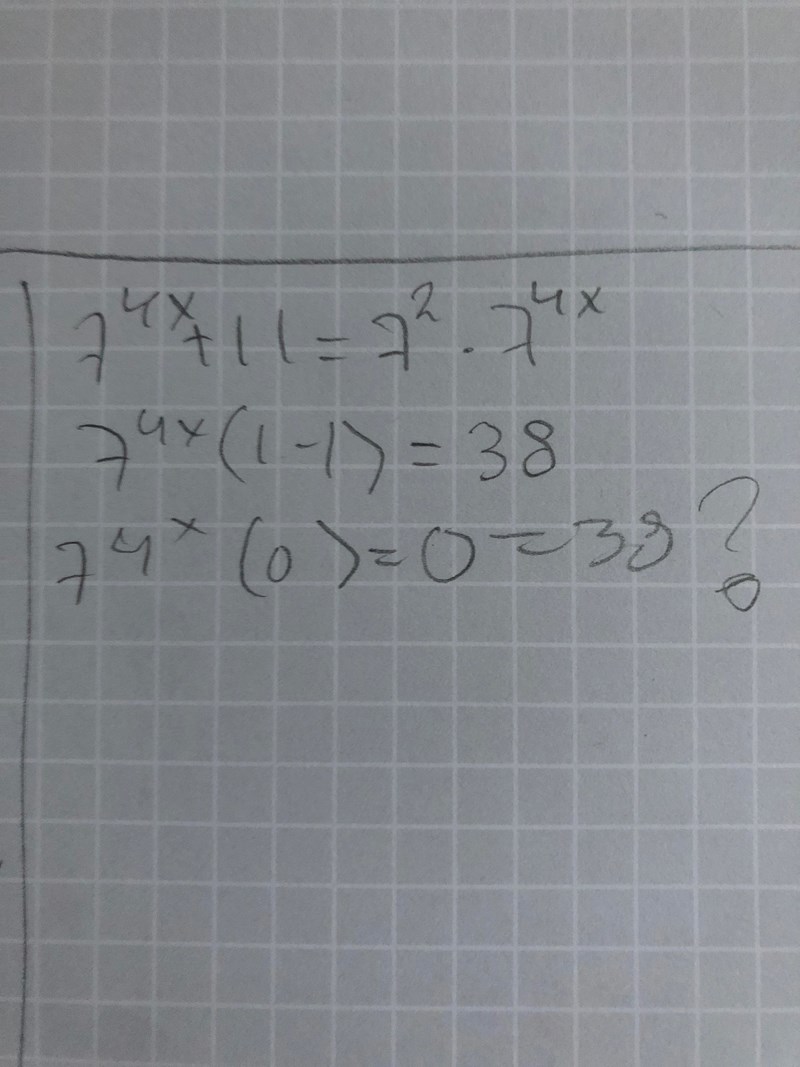 7^{4x}+11=7^2·7^{4x}
7^{4x}(1-1)=38
7^{4x}(0)=0=38?